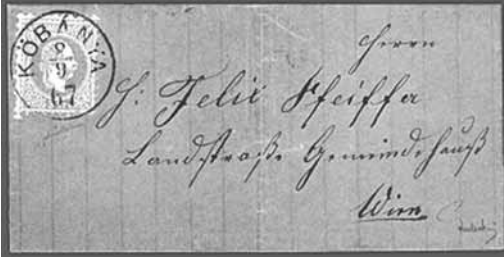 KÖBÁNYA
9/9
67
Herrn
H: Felix Pfeiffer
Landstraße Gemeindehauß
Wien